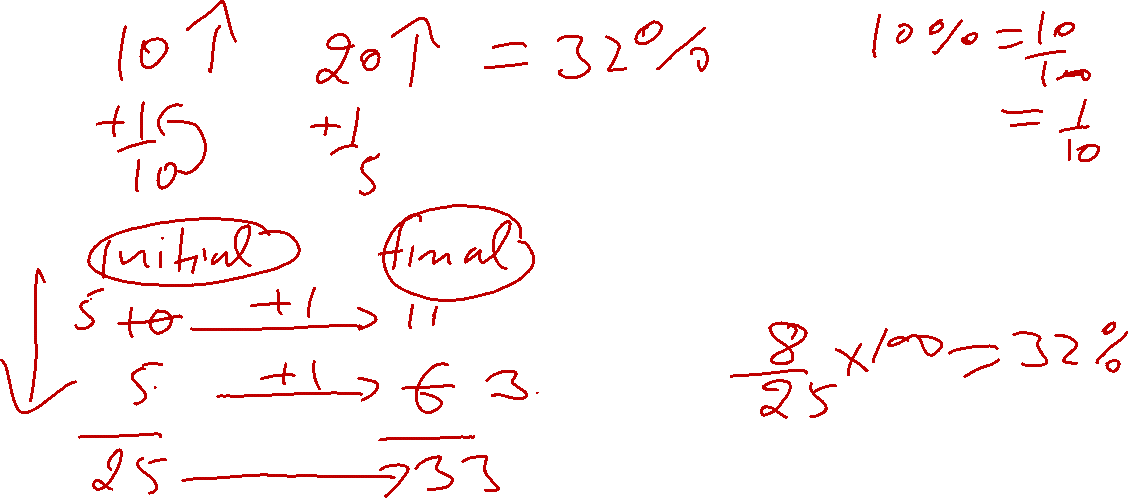 10↑ 20↑ = 32%
+1/10 +1/5
10% = 10/100
= 1/10
Initial final
5 10 +1→ 11
5 +1→ 6 3
25 → 33
8/25 × 100 = 32%